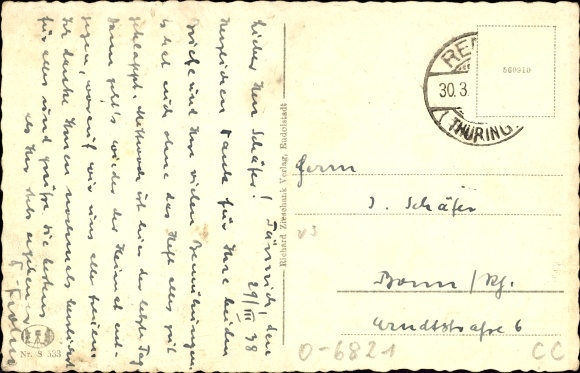 Lieber Herr Schäfer!
den
29/III 38
Herzlichen Dank für Ihre beiden
und Ihre vielen Bemühungen.
Es hat auch ohne das Heft alles gut
geklappt. Mittwoch ist hier der letzte Tag
dann geht's wieder der Heimat ent-
gegen, worauf wir uns alle freuen.
Ich danke Ihnen nochmals herzlichst
für alles und grüße Sie bestens
als Ihr sehr ergebener
Nr. S 533
Richard Zieschank Verlag, Rudolstadt
RE
30.3
(THÜRING
560910
Herrn
J. Schäfer
Bonn/Rh.
Arndtstraße 6
vs
O-6821
CC